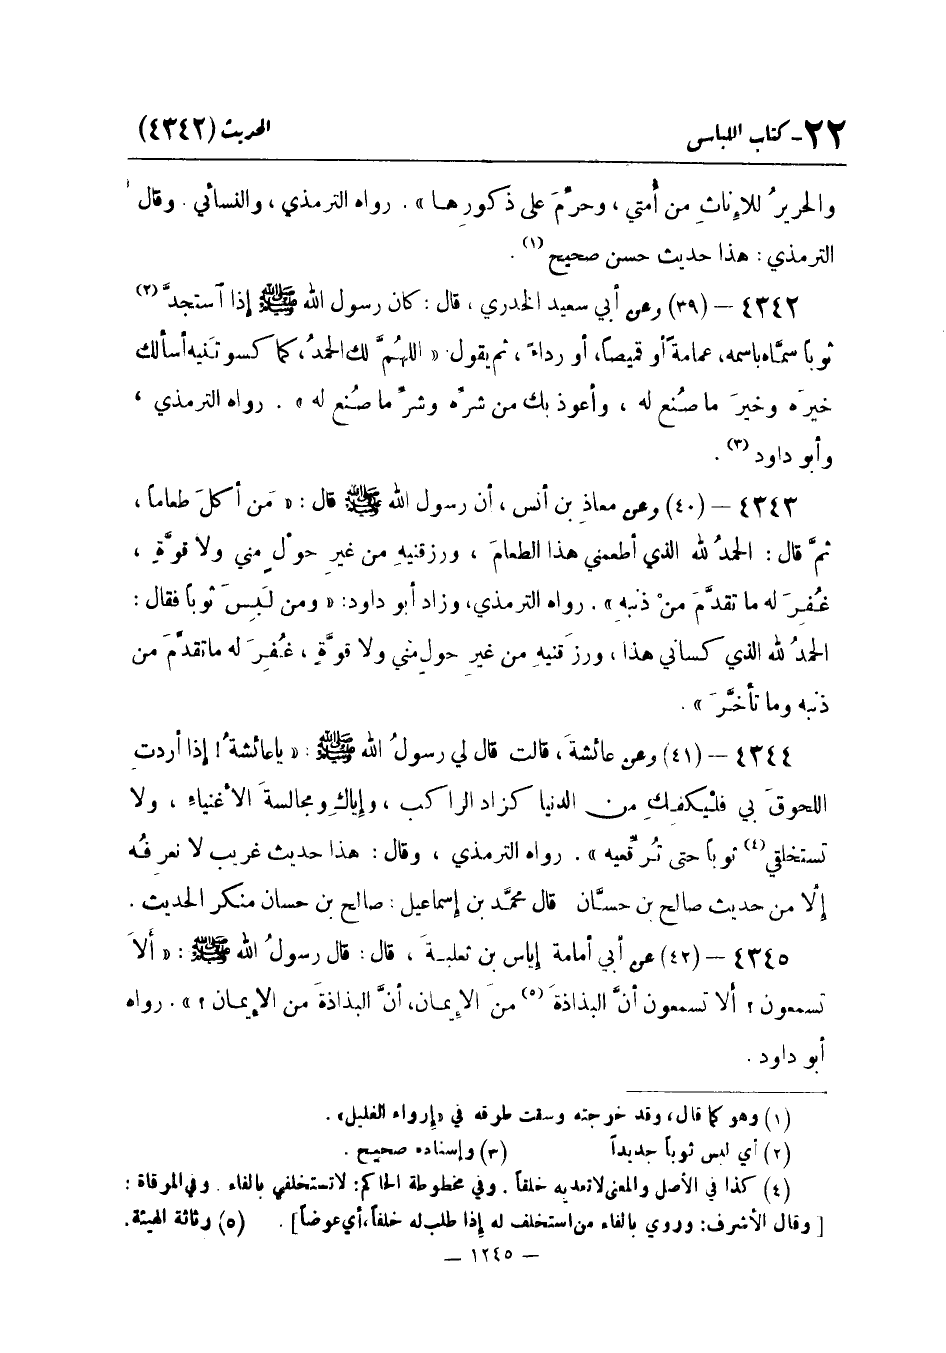 ٢٢- كتاب اللباس الحديث (٤٣٤٢)
والحريرُ للإناثِ من أُمتي ، وحرِّمَ على ذكورِهـا » . رواه الترمذي ، والنسائي . وقال
الترمذي : هذا حديث حسن صحيح (١) .
٤٣٤٢ – (٣٩) وعن أبي سعيد الخدري ، قال : كان رسول الله ﷺ إذا آستجدَّ (٢)
ثوباً سمَّاه باسمه، عمامةً أو قميصاً، أو رداءً ، ثم يقول « اللهُمَّ لك الحمدُ، كما كسوتَنيه أسألك
خيرَه وخيرَ ما صُنع له ، وأعوذ بك من شرِّه وشرِّ ما صُنع له » . رواه الترمذي ،
وأبو داود (٣) .
٤٣٤٣ – (٤٠) وعن معاذِ بن أنس ، أن رسول الله ﷺ قال : « مَن أكلَ طعاماً ،
ثمَّ قال : الحمدُ لله الذي أطعمني هذا الطعامَ ، ورزقنيهِ من غيرِ حوْلٍ مني ولا قوَّةٍ ،
غُفِرَ له ما تقدَّمَ منْ ذنبهِ » . رواه الترمذي، وزاد أبو داود: « ومن لَبِسَ ثوباً فقال :
الحمدُ لله الذي كساني هذا ، ورزَقنيهِ من غيرِ حولٍ مني ولا قوَّةٍ ، غُفِرَ له ماتقدَّمَ من
ذنبه وما تأخَّرَ » .
٤٣٤٤ – (٤١) وعن عائشةَ ، قالت قال لي رسولُ الله ﷺ : « ياعائشةُ ! إذا أردتِ
اللحوقَ بي فلْيكفِكِ من الدنيا كزاد الراكب ، وإياكِ ومجالسةَ الأغنياءِ ، ولا
تستخلقي (٤) ثوباً حتى تُرقّعيه » . رواه الترمذي ، وقال : هذا حديث غريب لا نعرفُه
إلا من حديث صالح بن حسَّان قال محمَّد بن إسماعيل : صالح بن حسان منكر الحديث .
٤٣٤٥ – (٤٢) عن أبي أمامة إياس بن ثعلبـةَ ، قال : قال رسولُ الله ﷺ : « أَلاَ
تسمعون ؟ ألا تسمعون أنَّ البذاذةَ (٥) منَ الإيمـان، أنَّ البذاذةَ من الإيمان ؟ » . رواه
أبو داود .
(١) وهو كما قال، وقد خرجته وسقت طرقه في «إرواء الغليل» .
(٢) أي لبس ثوباً جديداً (٣) وإسناده صحيح .
(٤) كذا في الأصل والمعنى لاتعديه خلقاً . وفي مخطوطة الحاكم: لاتستخلفي بالفاء . وفي المرقاة :
[ وقال الأشرف: وروي بالفاء من استخلف له إذا طلب له خلفاً، أي عوضاً] . (٥) رثاثة الهيئة.
– ١٢٤٥ –